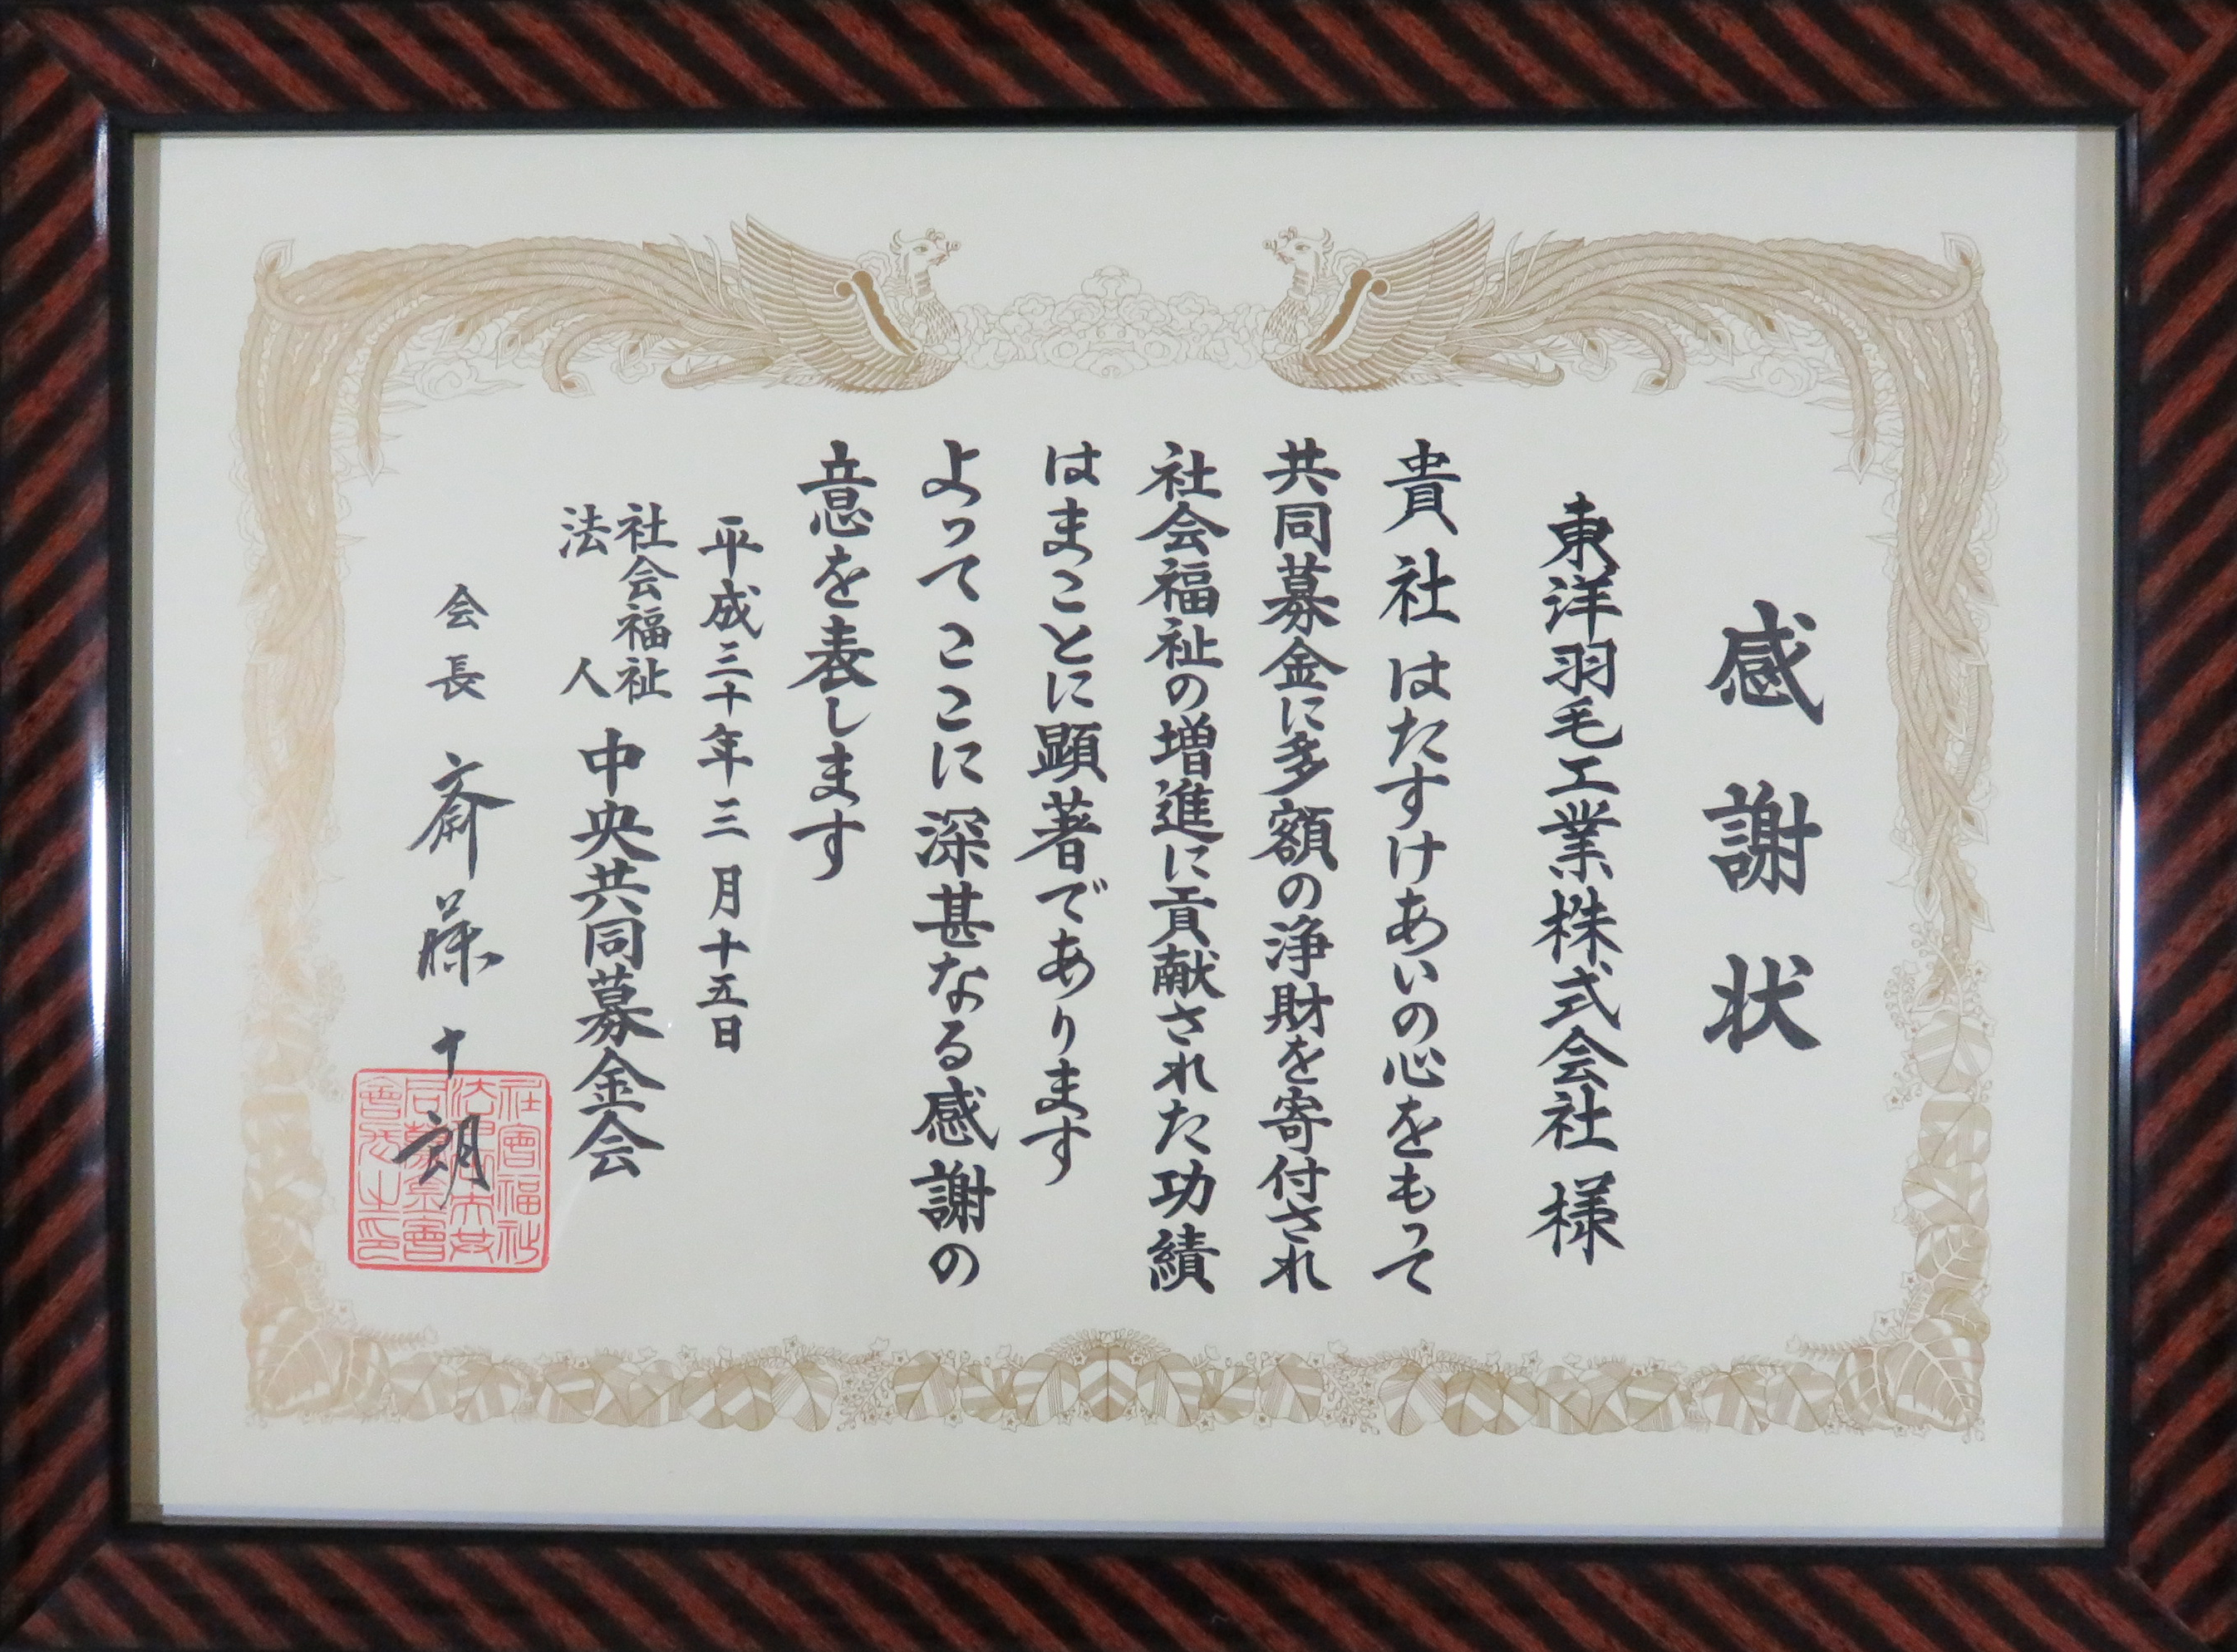 感謝状
東洋羽毛工業株式会社 様
貴社はたすけあいの心をもって
共同募金に多額の浄財を寄付され
社会福祉の増進に貢献された功績
はまことに顕著であります
よってここに深甚なる感謝の
意を表します
平成三十年三月十五日
社会福祉法人 中央共同募金会
会長 斎藤十朗